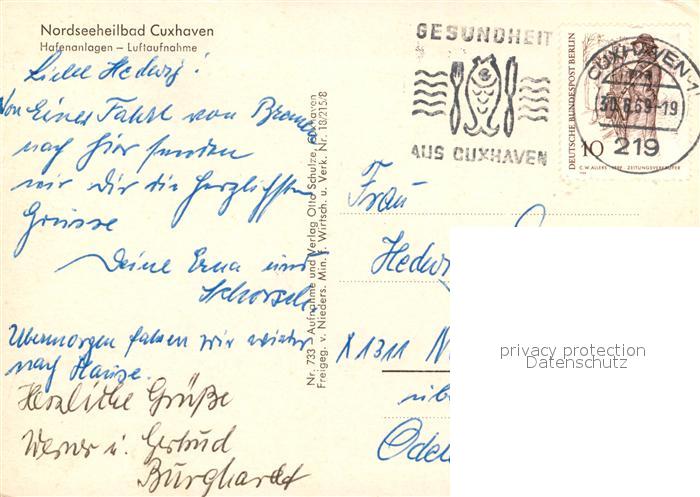 Nordseeheilbad Cuxhaven
Hafenanlagen – Luftaufnahme
Liebe Hedwig!
Von einer Fahrt von Bremen
nach hier senden
wir Dir die herzlichsten
Grüsse
Deine Erna und
Schorsch.
Übermorgen fahren wir wieder
nach Hause.
Herzliche Grüße
Werner u. Gertrud
Burghardt
Nr. 733 Aufnahme und Verlag Otto Schulze, Cuxhaven
Freigeg. v. Nieders. Min. f. Wirtsch. u. Verk. Nr. 18/215/8
GESUNDHEIT
AUS CUXHAVEN
DEUTSCHE BUNDESPOST BERLIN
10
C.W. ALLERS · ZEITUNGSVERKÄUFER
CUXHAVEN-1
30.8.69-19
219
Frau
Hedwig
X 1311
Ode
privacy protection
Datenschutz